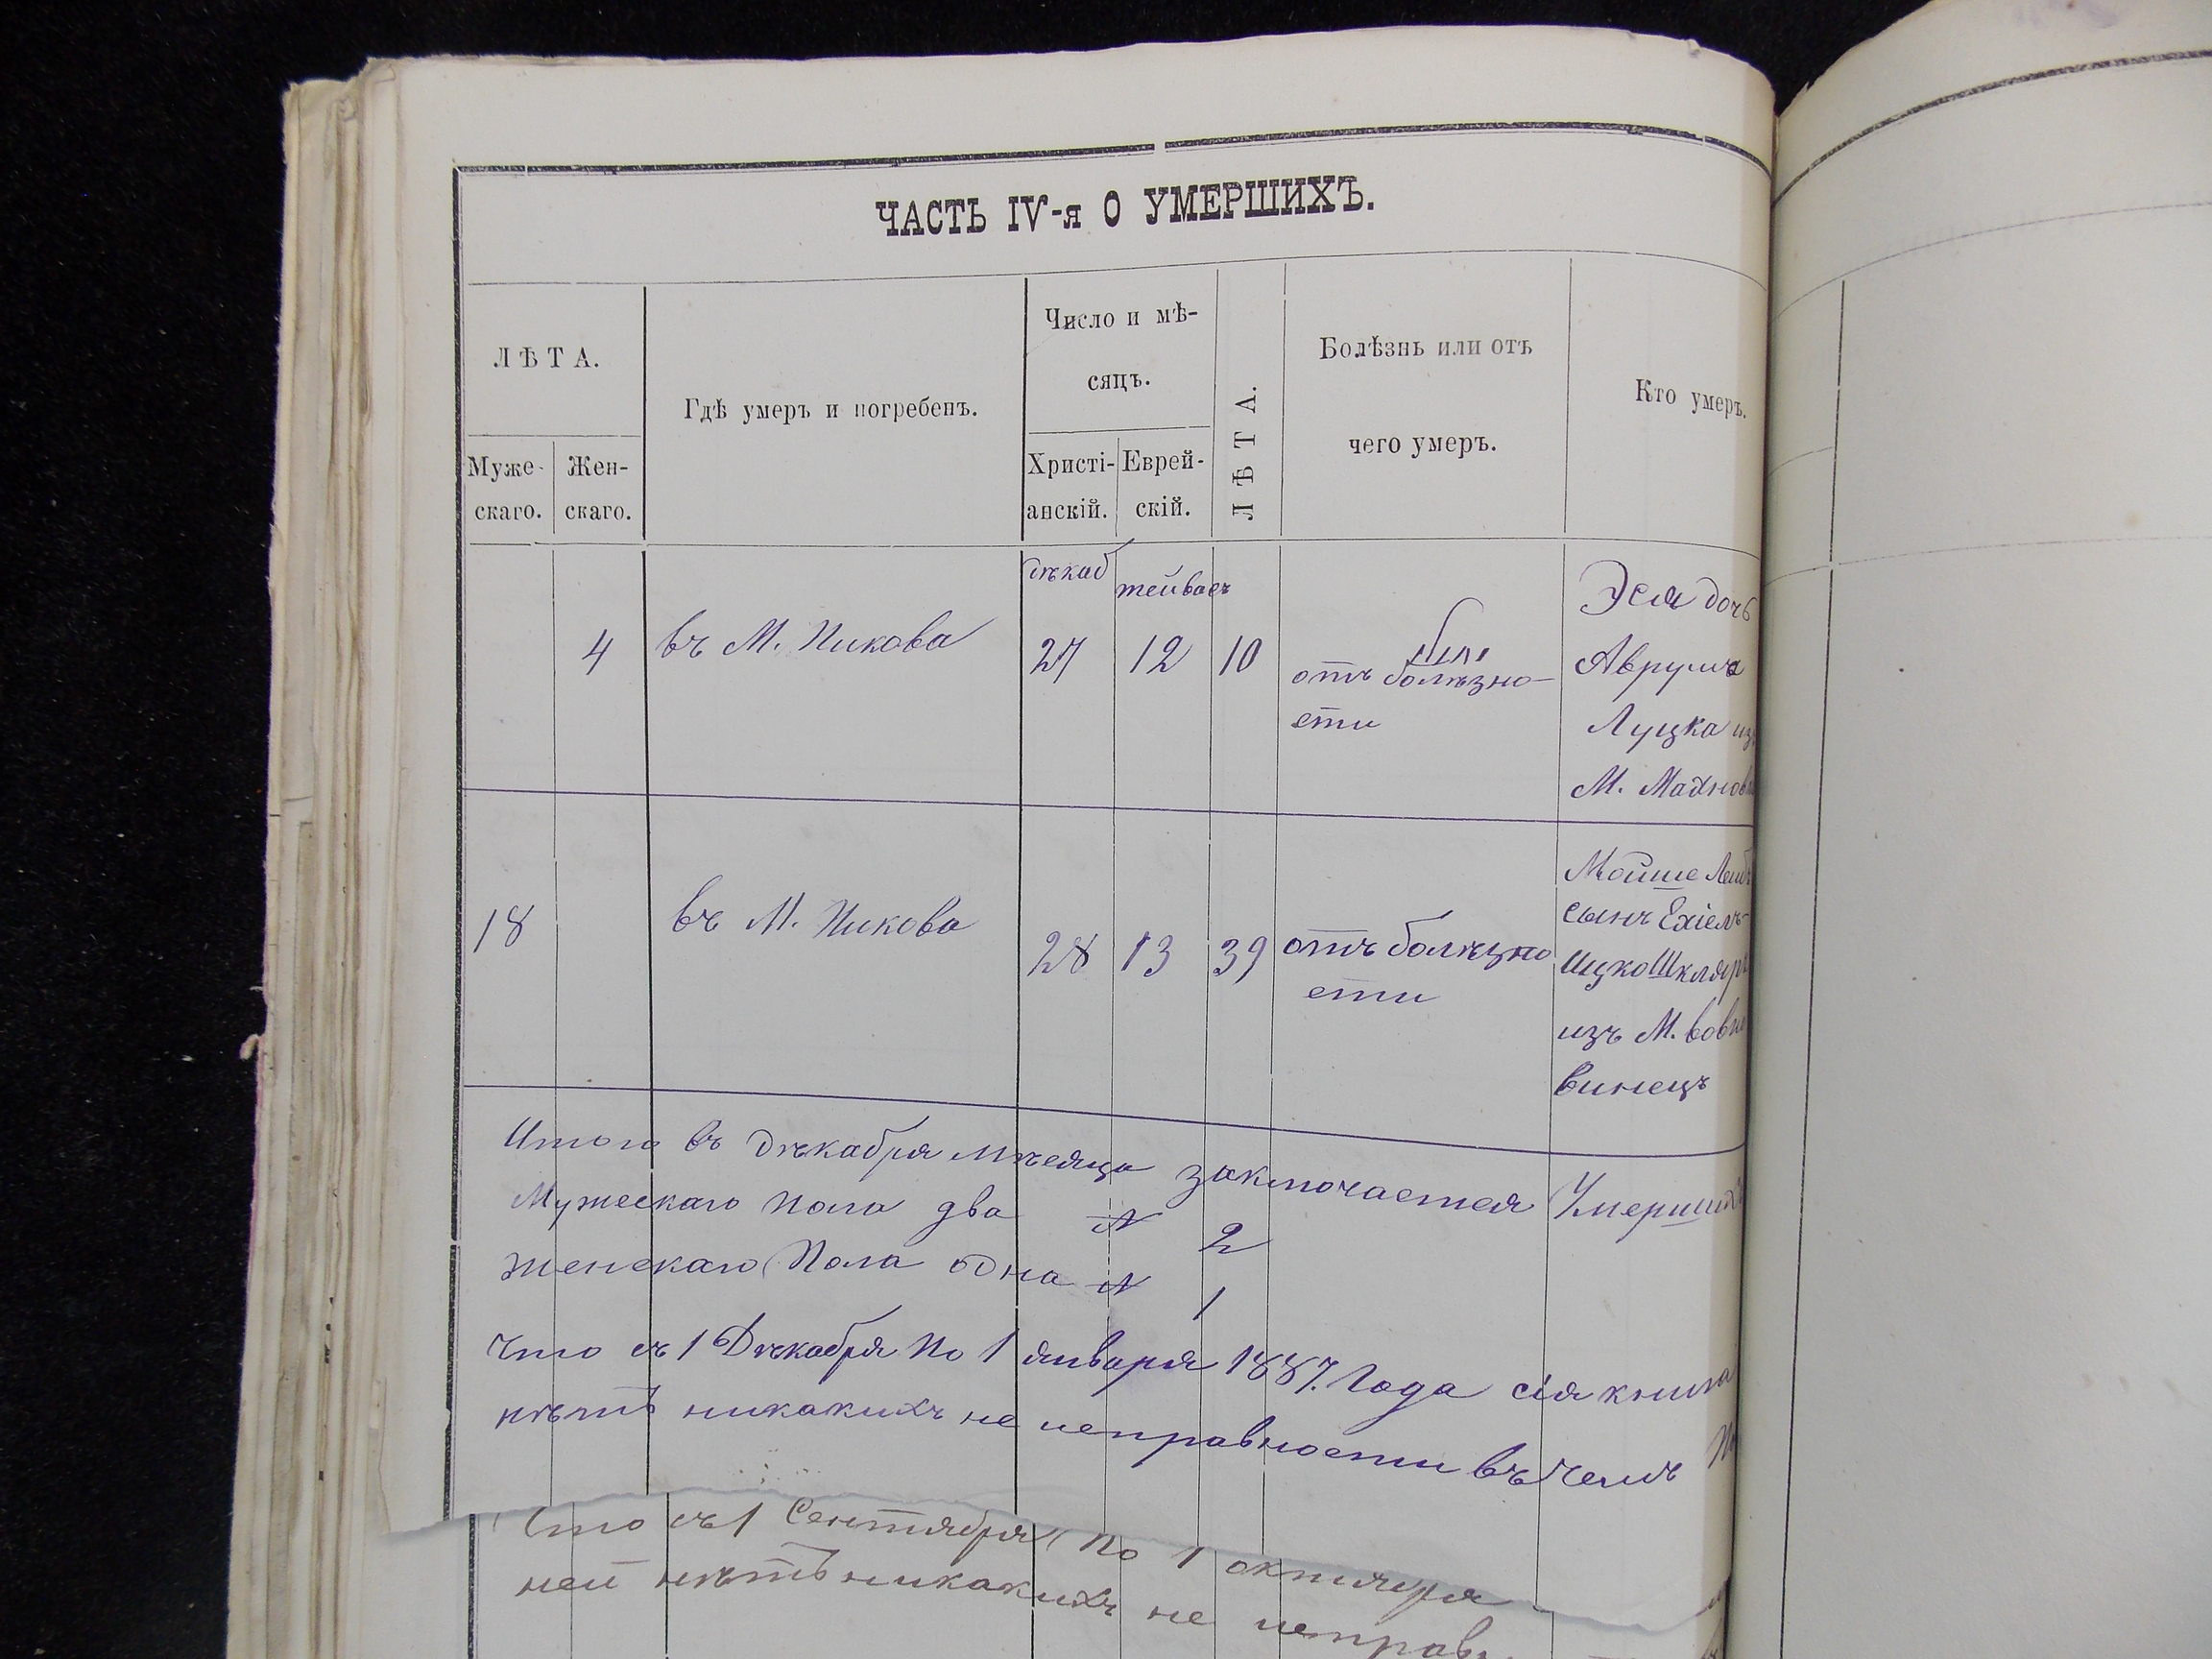 ЧАСТЬ IV-я О УМЕРШИХЪ.
ЛѢТА.
Муже-
скаго.
Жен-
скаго.
Гдѣ умеръ и погребенъ.
Число и мѣ-
сяцъ.
Христі-
анскій.
Еврей-
скій.
ЛѢТА.
Болѣзнь или отъ
чего умеръ.
Кто умеръ.
дѣкаб
тейвасъ
4 въ М. Пикова 27 12 10
отъ болѣзно-
сти
Эся дочь
Аврума
Луцка изъ
М. Махнов
18 въ М. Пикова 28 13 39
отъ болѣзно
сти
Мойше Лейб
сынъ Ехіель-
Ицко Шкляръ
изъ М. Вовко
винецъ
Итого въ дѣкабря мѣсяца заключается Умершихъ
Мужескаго Пола два № 2
женскаго Пола одна № 1
Что съ 1 Дѣкабря По 1 января 1887. Года сія книга
нѣтъ никакихъ не исправности въ чемъ
Что съ 1 Сентября По 1 октября
ней нѣтъ никакихъ не исправ